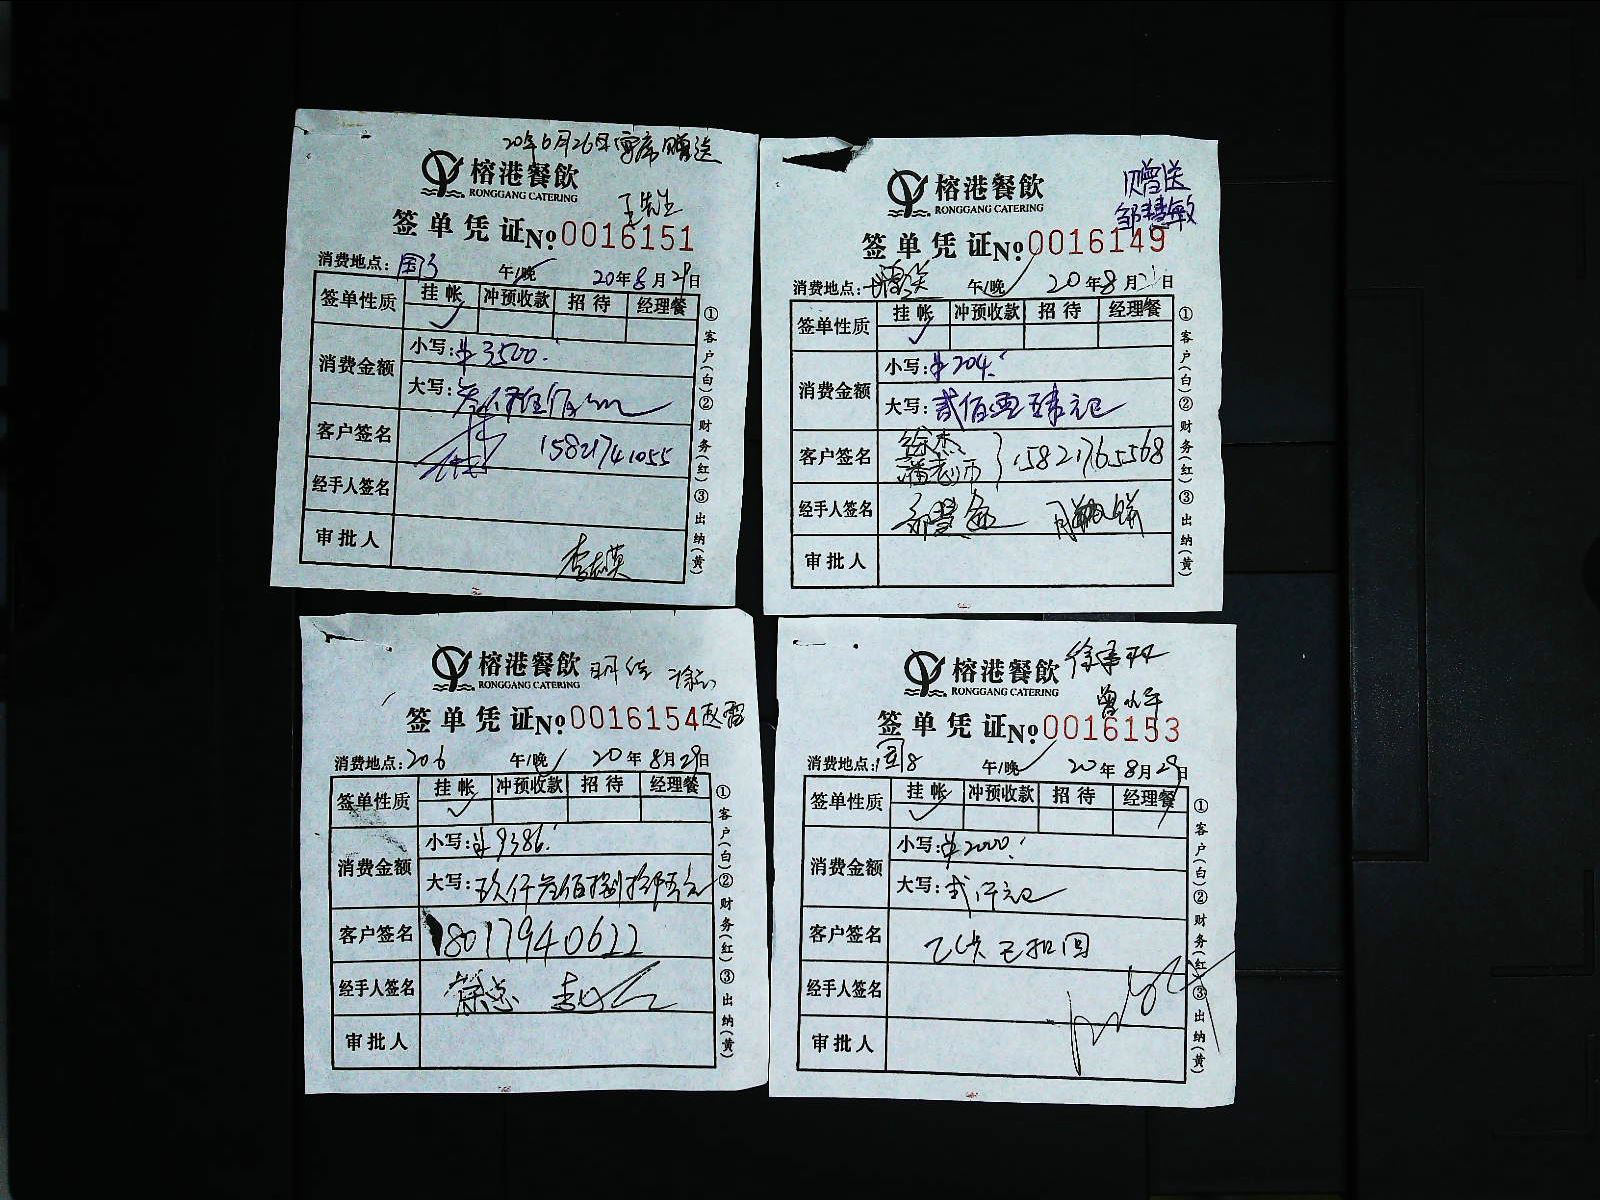 20年6月26日宴席赠送
榕港餐飲
RONGGANG CATERING
王先生
签单凭证No.0016151
消费地点: 午/晚 20年8月29日
签单性质 挂帐 冲预收款 招待 经理餐
消费金额 小写:¥3500.
大写:叁仟伍佰
客户签名 15821741055
经手人签名
审批人
①客户(白)②财务(红)③出纳(黄)
赠送
邹慧敏
榕港餐飲
RONGGANG CATERING
签单凭证No.0016149
消费地点:赠送 午/晚 20年8月 日
签单性质 挂帐 冲预收款 招待 经理餐
消费金额 小写:¥204.
大写:贰佰零肆元
客户签名 徐杰 潘老师 15821765568
经手人签名 邹慧敏
审批人
①客户(白)②财务(红)③出纳(黄)
榕港餐飲
RONGGANG CATERING
签单凭证No.0016154
消费地点:206 午/晚 20年8月29日
签单性质 挂帐 冲预收款 招待 经理餐
消费金额 小写:¥9386.
大写:玖仟叁佰捌拾陆元
客户签名 18017940622
经手人签名
审批人
①客户(白)②财务(红)③出纳(黄)
榕港餐飲
RONGGANG CATERING
签单凭证No.0016153
消费地点:国8 午/晚 20年8月29日
签单性质 挂帐 冲预收款 招待 经理餐
消费金额 小写:¥2000.
大写:贰仟元
客户签名 已扣回
经手人签名
审批人
①客户(白)②财务(红)③出纳(黄)